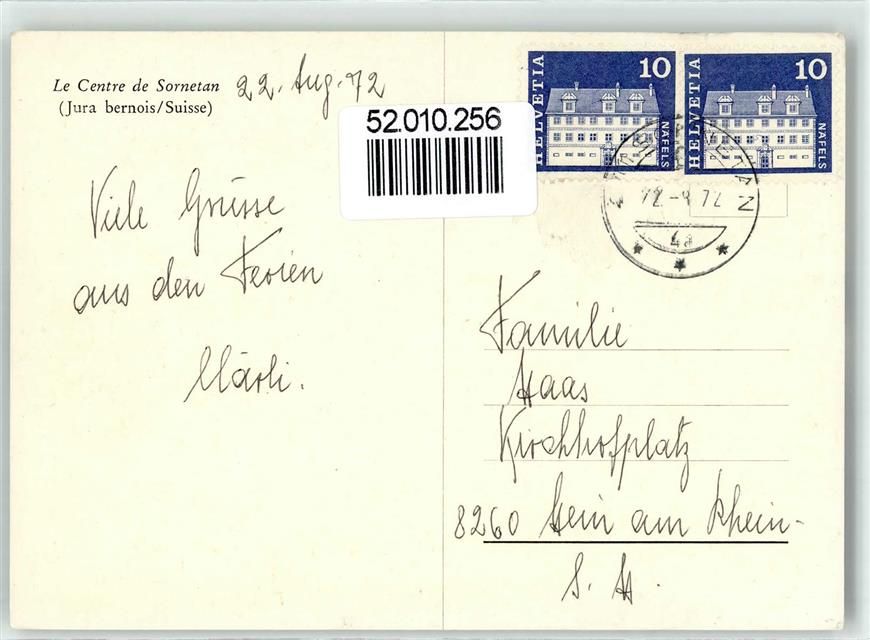 Le Centre de Sornetan
(Jura bernois/Suisse)
22. Aug. 72
52.010.256
HELVETIA
10
NÄFELS
HELVETIA
10
NÄFELS
22.-8.72
Viele Grüsse
aus den Ferien
Märli.
Familie
Haas
Kirchhofplatz
8260 Stein am Rhein-
S. H.